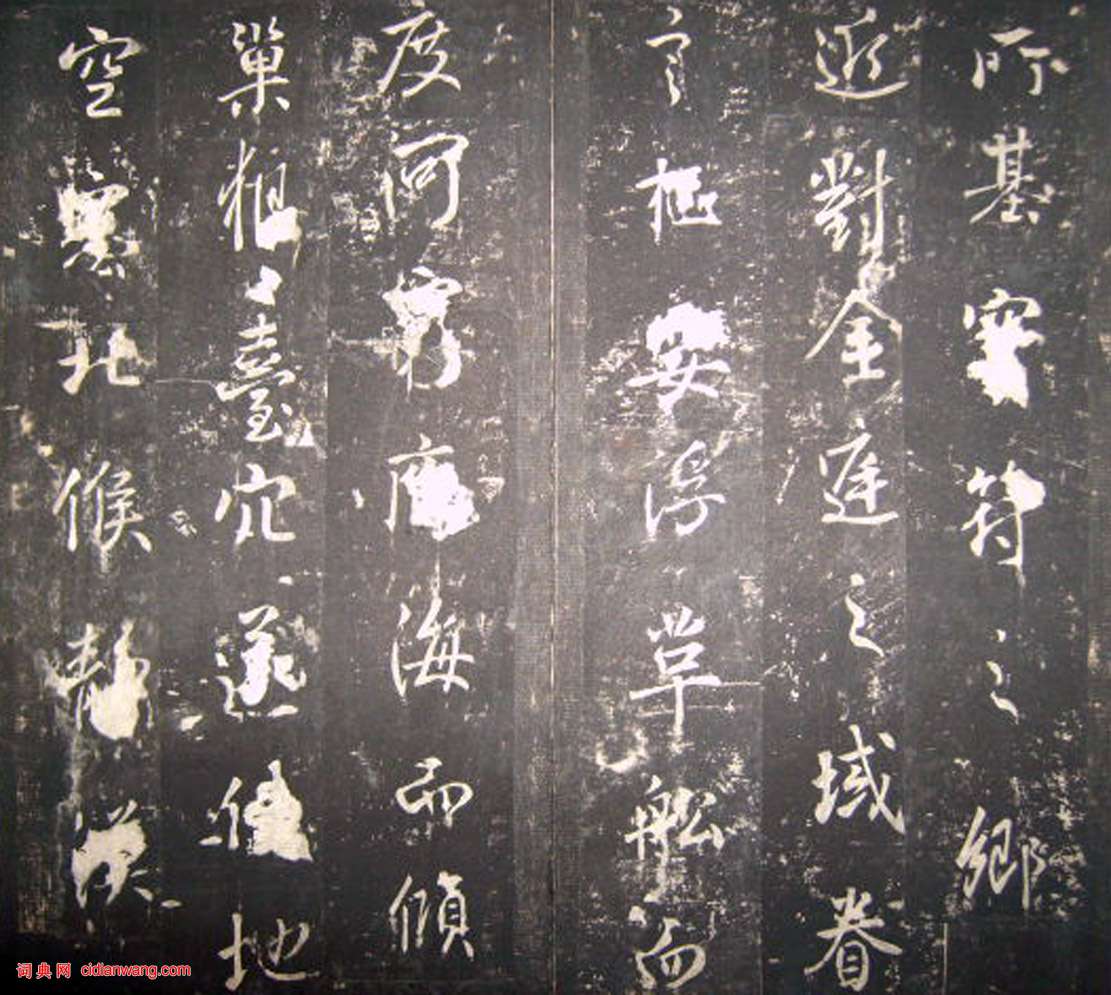 所基寶符之鄉
近對金庭之域眷
言安浮草船而
度河海而傾
巢臺穴遂使地
空塞北候静漢
词典网 cidianwang.com